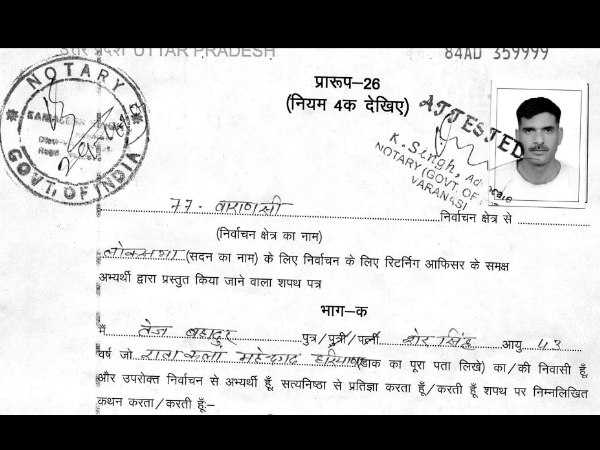 उत्तर प्रदेश UTTAR PRADESH
84AD 359999
NOTARY
GOVT. OF INDIA
प्रारूप–26
(नियम 4क देखिए)
ATTESTED
K. Singh, Advocate
NOTARY (GOVT. OF
VARANASI
77- वाराणसी निर्वाचन क्षेत्र से
(निर्वाचन क्षेत्र का नाम)
लोकसभा (सदन का नाम) के लिए निर्वाचन के लिए रिटर्निंग आफिसर के समक्ष
अभ्यर्थी द्वारा प्रस्तुत किया जाने वाला शपथ पत्र
भाग–क
मैं तेज बहादुर पुत्र/पुत्री/पत्नी शेर सिंह आयु 43
वर्ष जो (डाक का पूरा पता लिखे) का/की निवासी हूँ,
और उपरोक्त निर्वाचन से अभ्यर्थी हूँ, सत्यनिष्ठा से प्रतिज्ञा करता हूँ/करती हूँ शपथ पर निम्नलिखित
कथन करता/करती हूँ:–